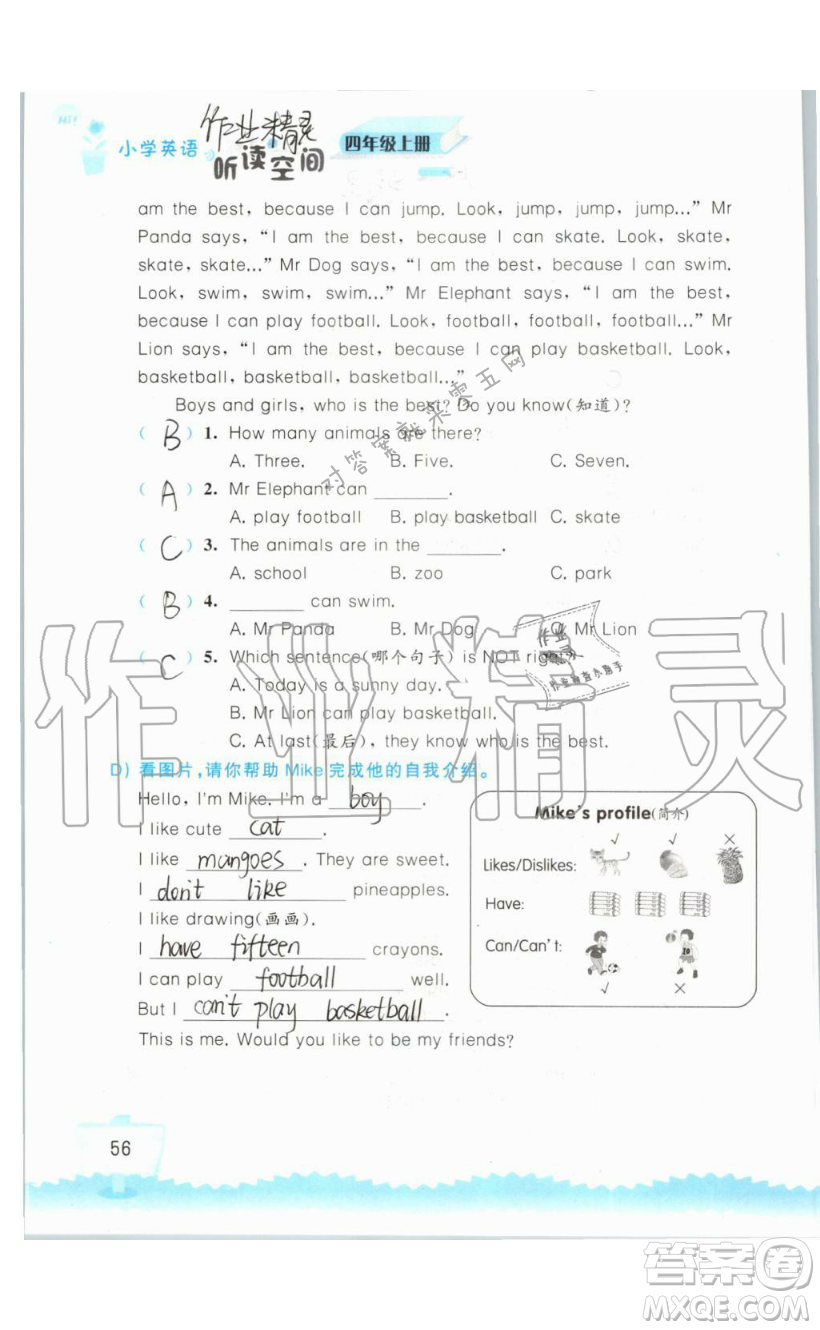 Hi!
小学英语 作业精灵 四年级上册
听读空间
am the best, because I can jump. Look, jump, jump, jump..." Mr
Panda says, "I am the best, because I can skate. Look, skate,
skate, skate..." Mr Dog says, "I am the best, because I can swim.
Look, swim, swim, swim..." Mr Elephant says, "I am the best,
because I can play football. Look, football, football, football..." Mr
Lion says, "I am the best, because I can play basketball. Look,
basketball, basketball, basketball..."
Boys and girls, who is the best? Do you know(知道)?
( B ) 1. How many animals are there?
A. Three. B. Five. C. Seven.
( A ) 2. Mr Elephant can ________.
A. play football B. play basketball C. skate
( C ) 3. The animals are in the ________.
A. school B. zoo C. park
( B ) 4. ________ can swim.
A. Mr Panda B. Mr Dog C. Mr Lion
( C ) 5. Which sentence(哪个句子) is NOT right?
A. Today is a sunny day.
B. Mr Lion can play basketball.
C. At last(最后), they know who is the best.
D) 看图片,请你帮助Mike完成他的自我介绍。
Hello, I'm Mike. I'm a boy.
I like cute cat.
I like mangoes. They are sweet.
I don't like pineapples.
I like drawing(画画).
I have fifteen crayons.
I can play football well.
But I can't play basketball.
This is me. Would you like to be my friends?
Mike's profile(简介)
√ √ ×
Likes/Dislikes:
Have:
Can/Can't:
√ ×
56
对答案就来零五网
作业精灵
答案圈
MXQE.COM